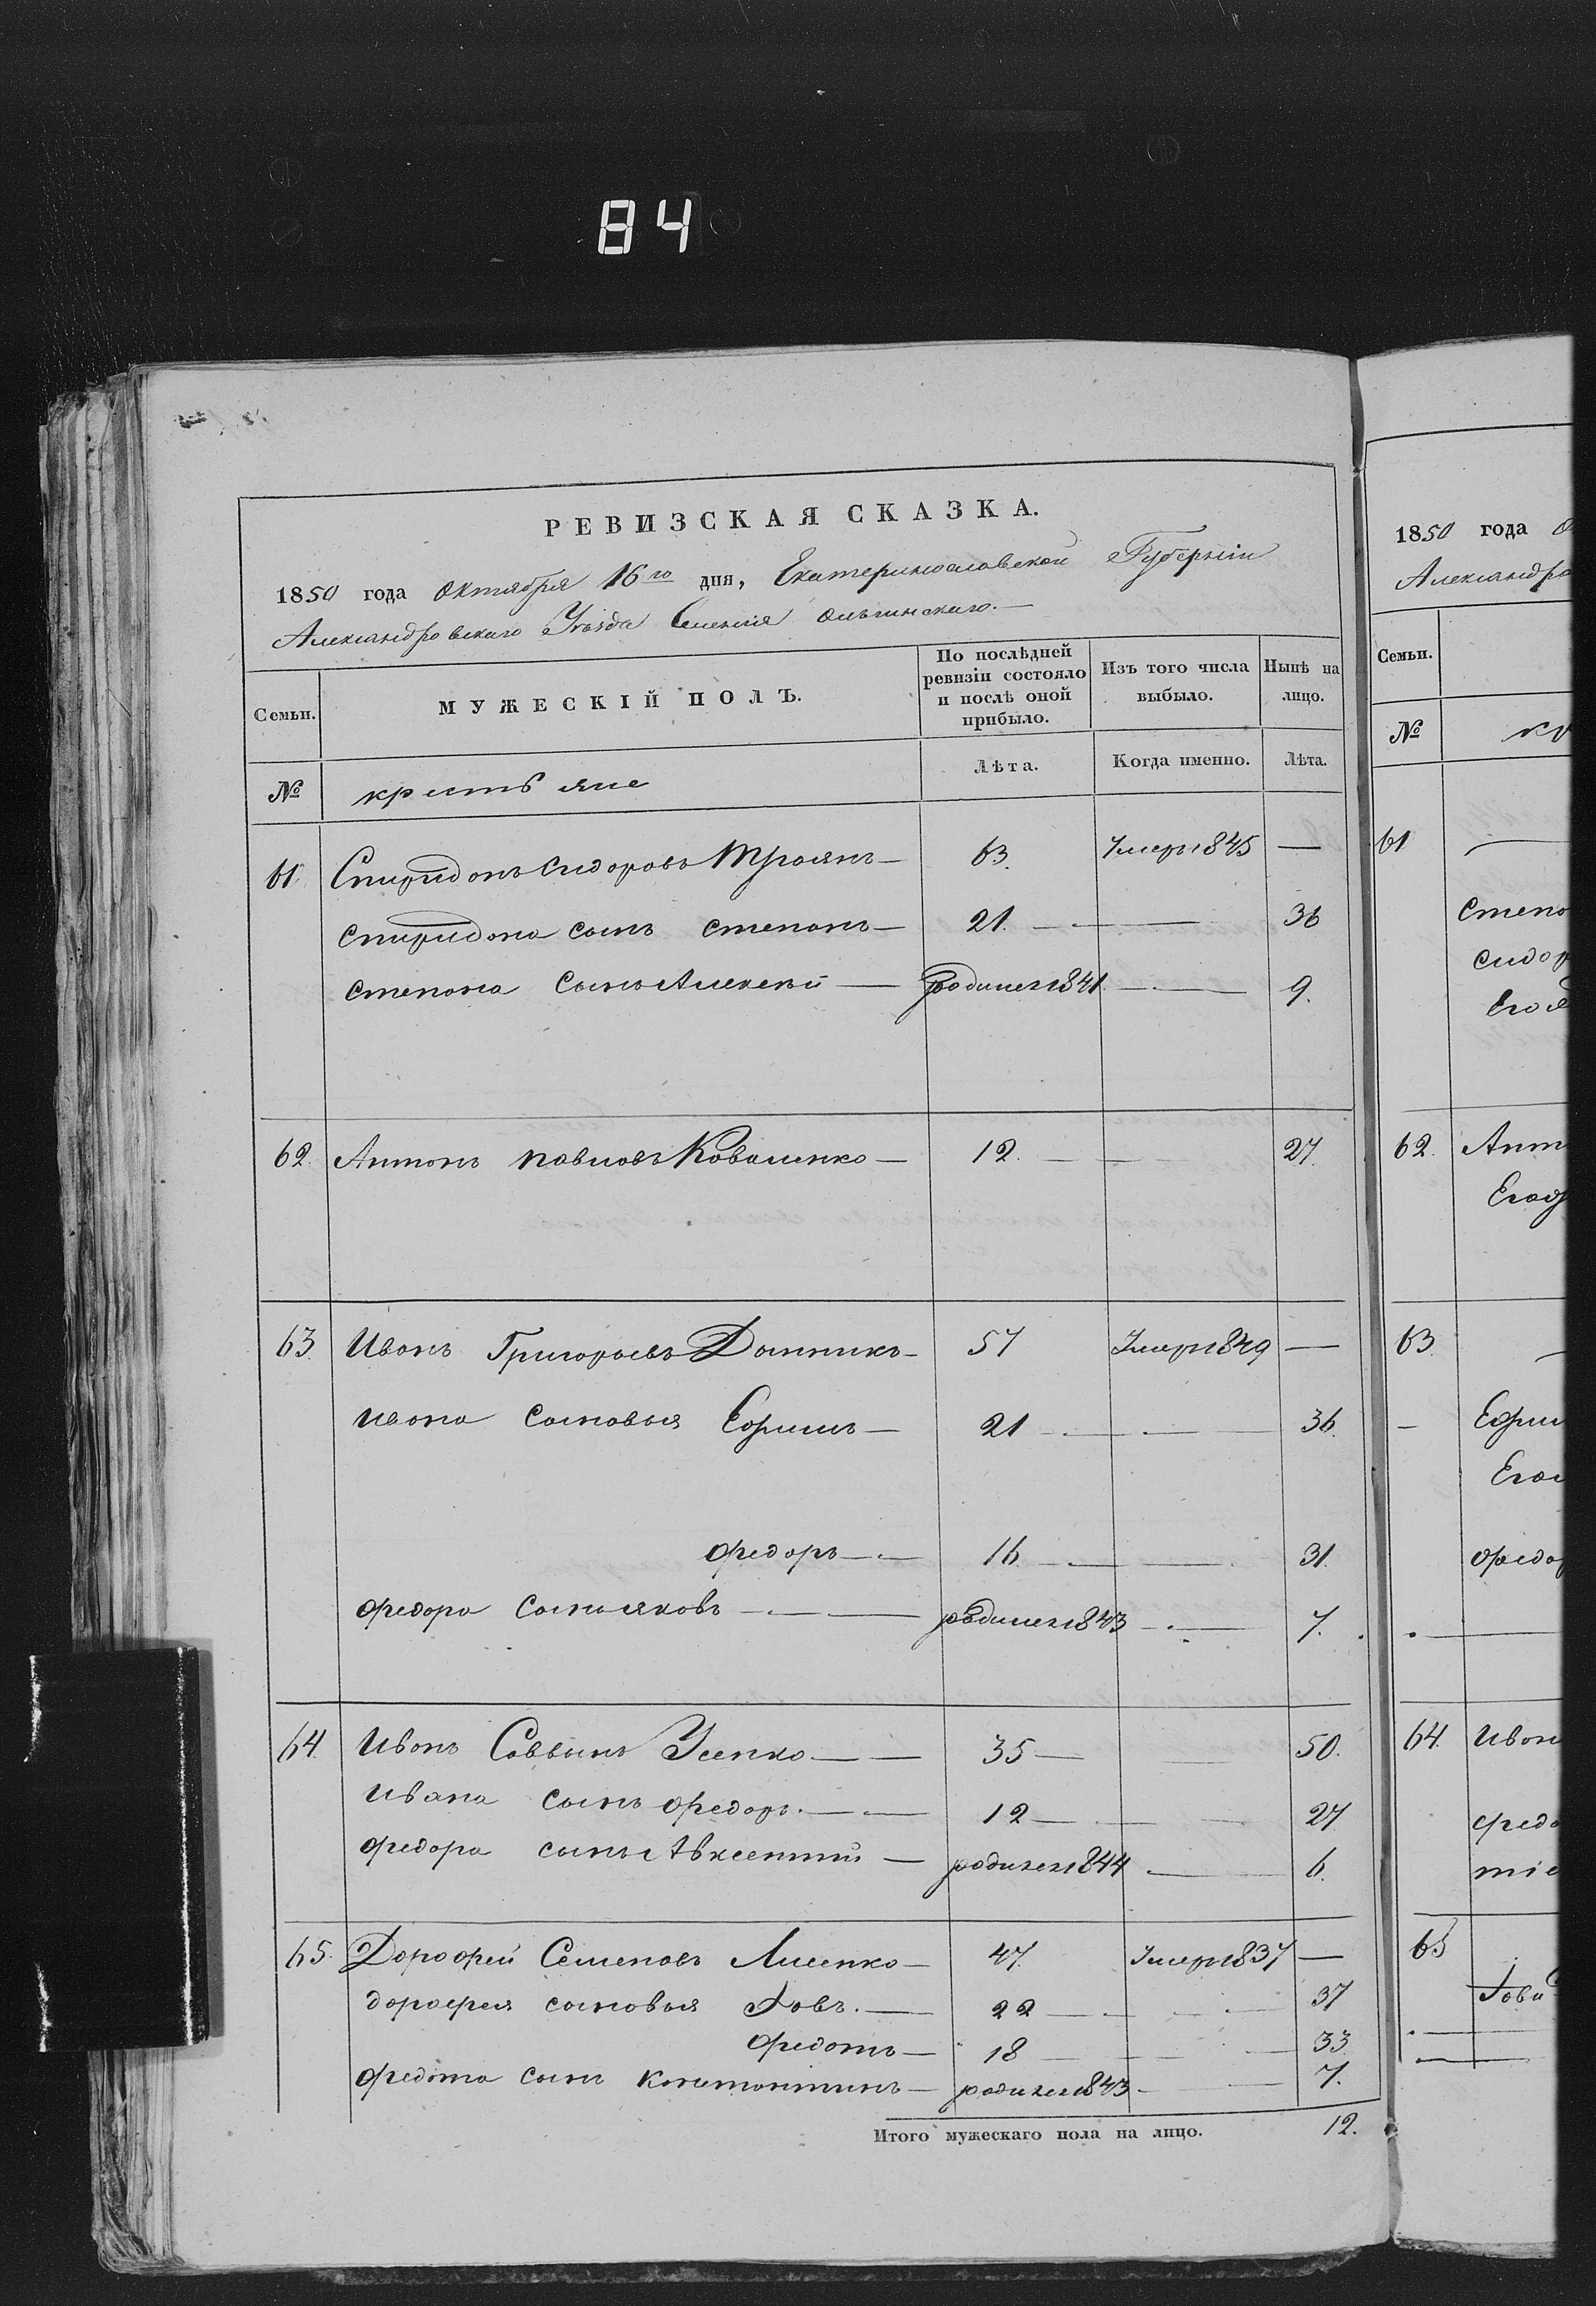 84
РЕВИЗСКАЯ СКАЗКА.
1850 года Октября 16го дня, Екатеринославской Губерніи
Александровскаго Уѣзда Селенія Ольгинскаго.—
Семьи. МУЖЕСКІЙ ПОЛЪ. По послѣдней ревизіи состояло и послѣ оной прибыло. Изъ того числа выбыло. Нынѣ на лицо.
№ крестьяне Лѣта. Когда именно. Лѣта.
61 Спиридонъ Сидоровъ Троянъ— 63. Умеръ 1845 —
Спиридона сынъ Степанъ— 21. — 36
Степана сынъ Алексѣй — родился 1841. — 9.
62. Антонъ Павловъ Коваленко— 12. — 27.
63. Иванъ Григорьевъ Долиникъ— 57 Умеръ 1849 —
Ивана сыновья Ефимъ— 21 — 36.
Федоръ— 16. — 31.
Федора сынъ Яковъ — родился 1843 — 7.
64. Иванъ Саввинъ Усенко— 35 — 50.
Ивана сынъ Федоръ.— 12 — 27
Федора сынъ Авксентий — родился 1844 — 6.
65. Дорофей Семеновъ Лисенко— 47. Умеръ 1837 —
Дорофея сыновья Іовъ.— 22 — 37
Федотъ— 18 — 33
Федота сынъ Константинъ— родился 1843 — 7.
Итого мужескаго пола на лицо. 12.
1850 года
Семьи.
№
61
62.
63
64. Иван
65